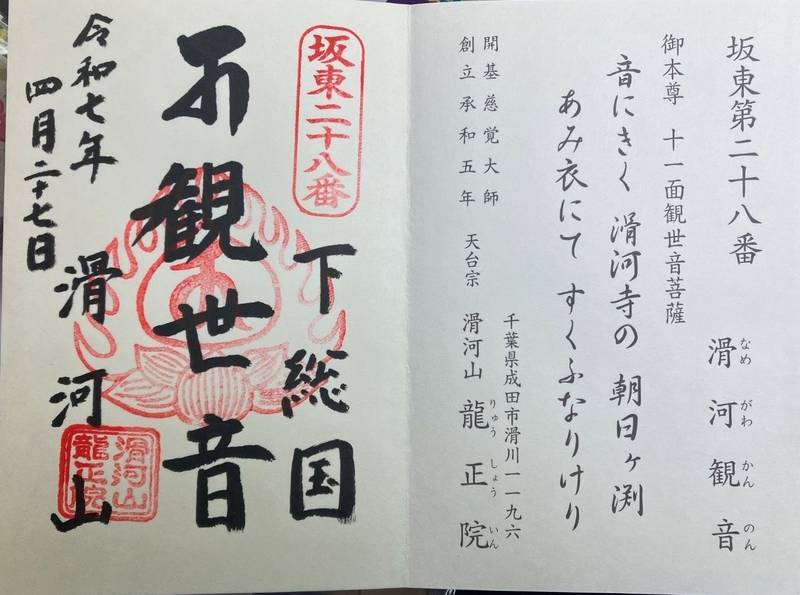 坂東第二十八番
滑河観音
なめがわかんのん
御本尊 十一面観世音菩薩
音にきく 滑河寺の 朝日ヶ渕
あみ衣にて すくふなりけり
千葉県成田市滑川一一九六
開基慈覚大師
創立承和五年
天台宗 滑河山 龍正院
りゅうしょういん
坂東二十八番
下総国
観世音
滑河山
令和七年
四月二十七日
滑河山
龍正院